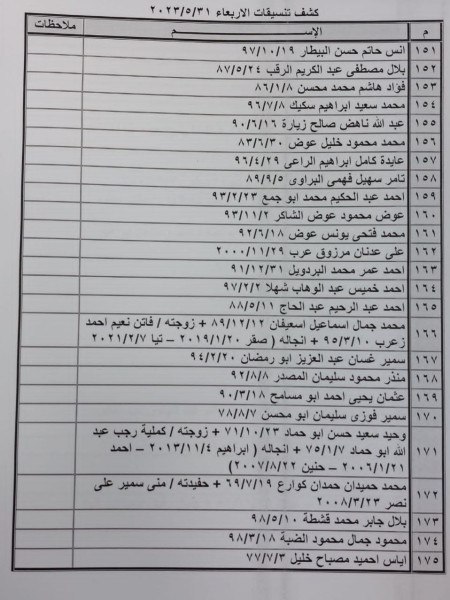 كشف تنسيقات الاربعاء ٢٠٢٣/٥/٣١
م الإســـــم ملاحظات
١٥١ انس حاتم حسن البيطار ٩٧/١٠/١٩
١٥٢ بلال مصطفى عبد الكريم الرقب ٨٧/٥/٢٤
١٥٣ فؤاد هاشم محمد محسن ٨٦/١/٨
١٥٤ محمد سعيد ابراهيم سكيك ٩٦/٧/٨
١٥٥ عبد الله ناهض صالح زيارة ٩٠/٦/١٦
١٥٦ محمد محمود خليل عوض ٨٣/٦/٣٠
١٥٧ عايدة كامل ابراهيم الراعى ٩٦/٤/٢٩
١٥٨ تامر سهيل فهمى البراوى ٨٩/٩/٥
١٥٩ احمد عبد الحكيم محمد ابو جمع ٩٣/٢/٢٣
١٦٠ عوض محمود عوض الشاكر ٩٣/١١/٢
١٦١ محمد فتحى يونس عوض ٩٢/٦/١٨
١٦٢ على عدنان مرزوق عرب ٢٠٠٠/١١/٢٩
١٦٣ احمد عمر محمد البردويل ٩١/١٢/٣١
١٦٤ احمد خميس عبد الوهاب شهلا ٩٧/٢/٢
١٦٥ احمد عبد الرحيم عبد الحاج ٨٨/٥/١١
١٦٦ محمد جمال اسماعيل اسعيفان ٨٩/١٢/١٢ + زوجته / فاتن نعيم احمد
زعرب ٩٥/٣/١٠ + انجاله ( صقر ٢٠١٩/١/٢٠ – تيا ٢٠٢١/٢/٧
١٦٧ سمير غسان عبد العزيز ابو رمضان ٩٤/٢/٢٠
١٦٨ منذر محمود سليمان المصدر ٩٢/٨/٨
١٦٩ عثمان يحيى احمد ابو مسامح ٩٠/٣/١٨
١٧٠ سمير فوزى سليمان ابو محسن ٧٨/٨/٧
١٧١ وحيد سعيد حسن ابو حماد ٧١/١٠/٢٣ + زوجته / كملية رجب عبد
الله ابو حماد ٧٥/١/٧ + انجاله ( ابراهيم ٢٠١٣/١١/٤ – احمد
٢٠٠٦/١/٢١ – حنين ٢٠٠٧/٨/٢٢)
١٧٢ محمد حميدان حمدان كوارع ٦٩/٧/١٩ + حفيدته / منى سمير على
نصر ٢٠٠٨/٣/٢٣
١٧٣ بلال جابر محمد قشطة ٩٨/٥/١٠
١٧٤ محمود جمال محمود الضبة ٩٨/٣/١٨
١٧٥ اياس احميد مصباح خليل ٧٧/٧/٣